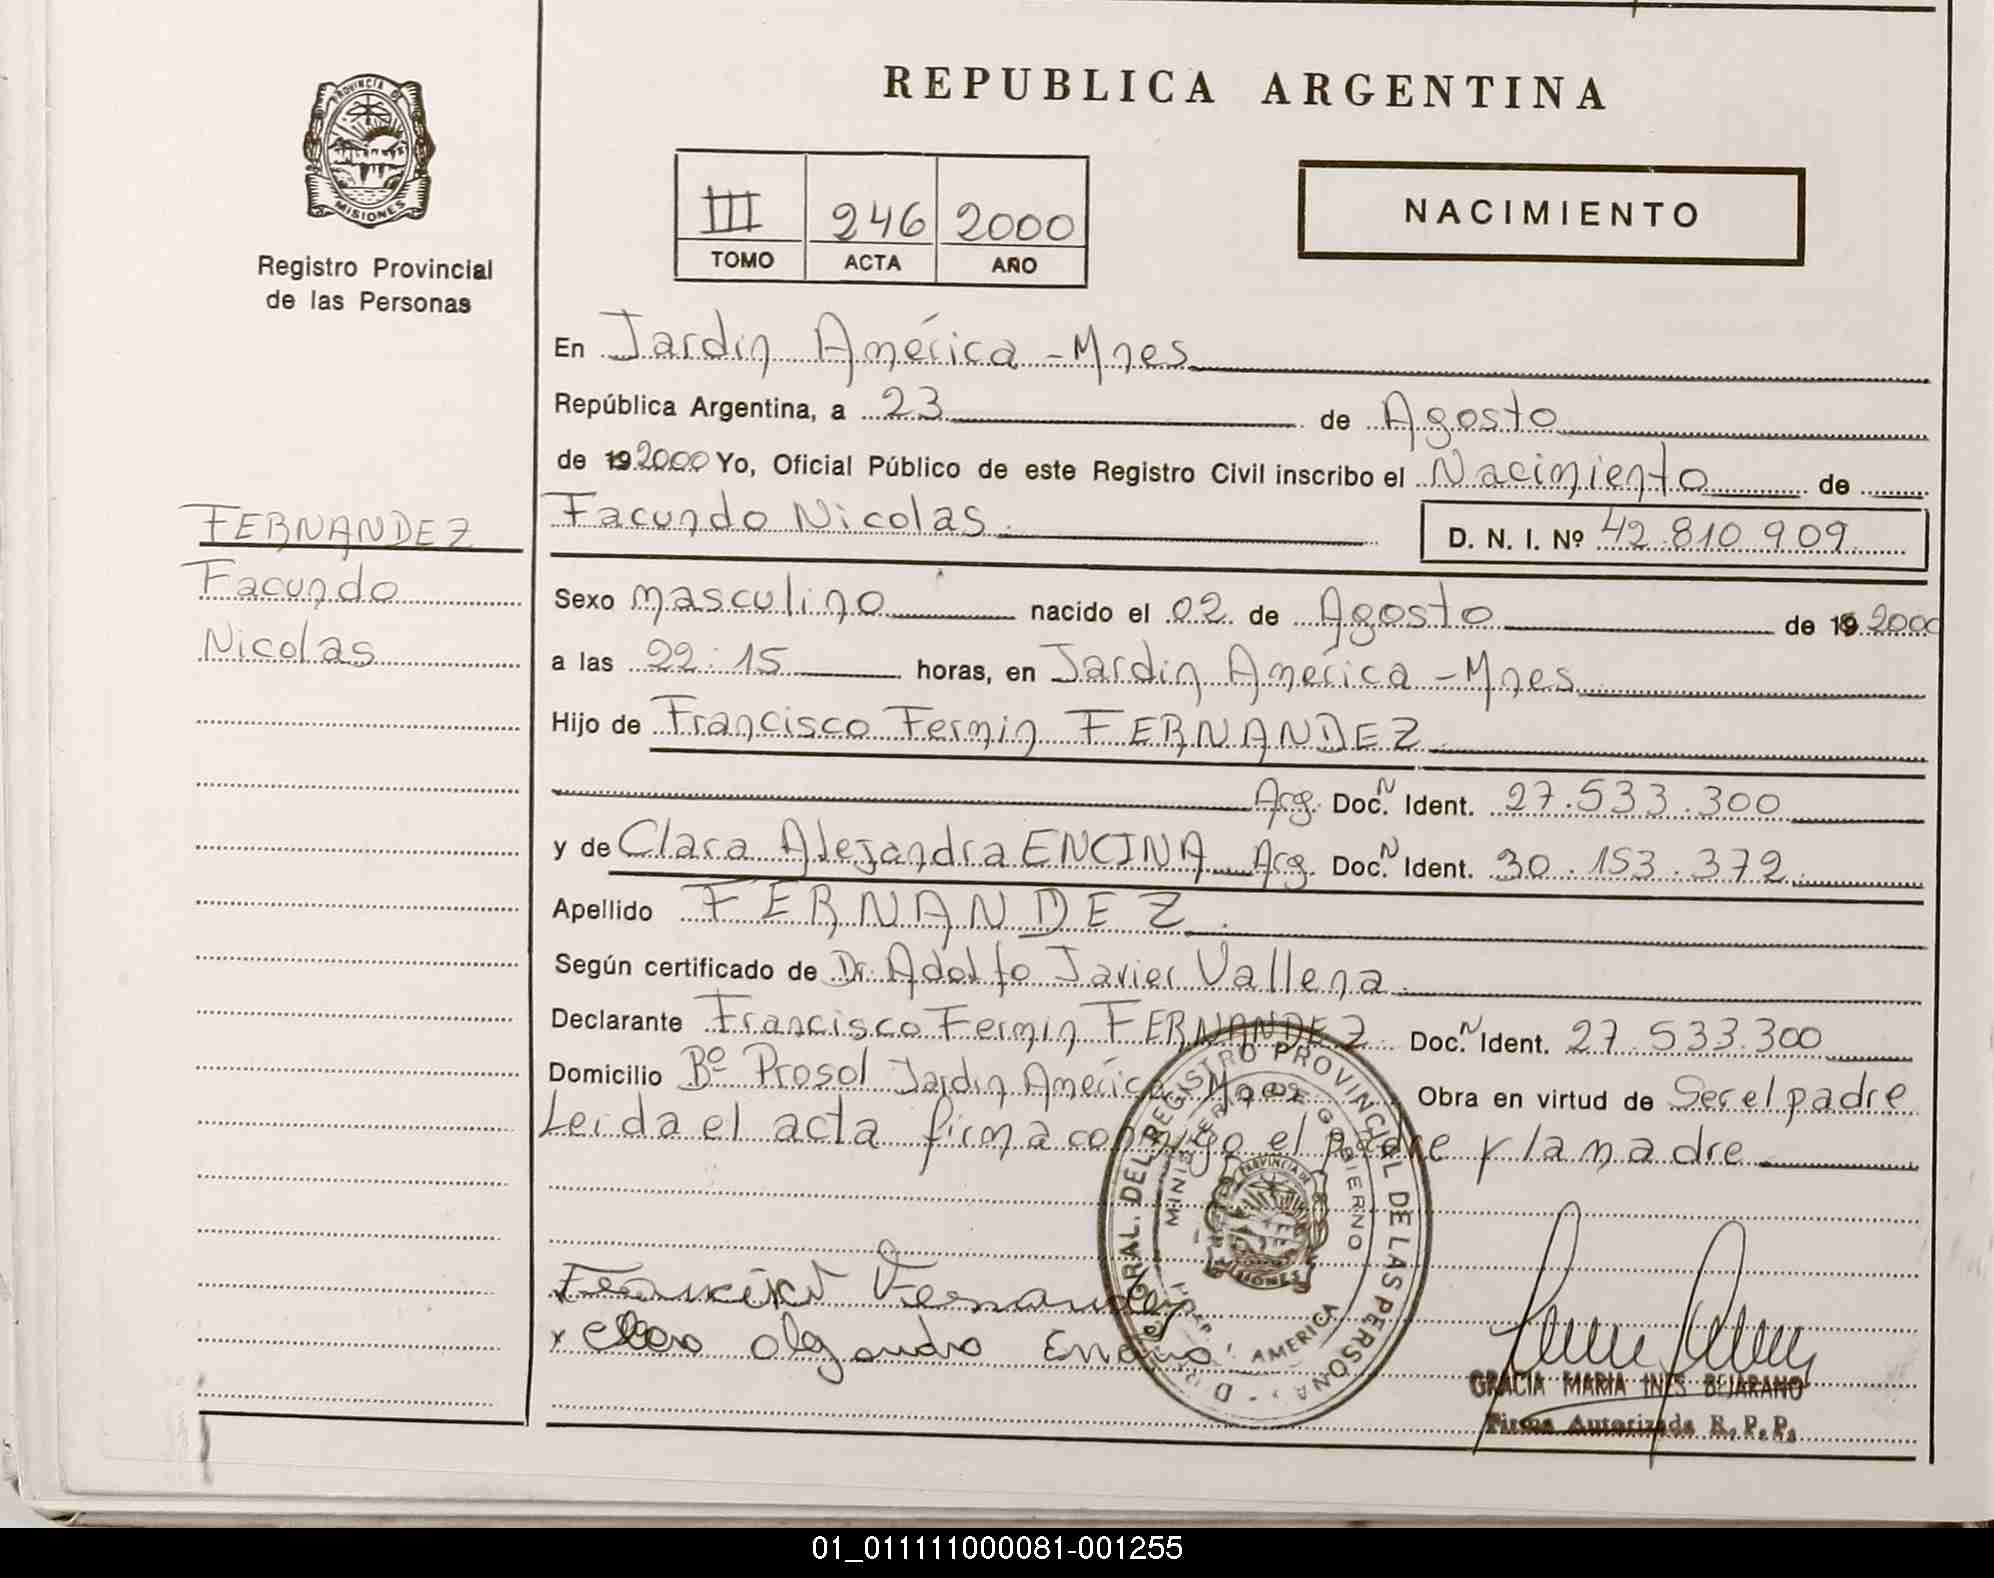 REPUBLICA ARGENTINA
PROVINCIA DE
MISIONES
Registro Provincial
de las Personas
III 246 2000
TOMO ACTA AÑO
NACIMIENTO
En Jardin América - Mnes
República Argentina, a 23 de Agosto
de 19 2000 Yo, Oficial Público de este Registro Civil inscribo el Nacimiento de
Facundo Nicolas
D. N. I. Nº 42.810.909
FERNANDEZ
Facundo
Nicolas
Sexo masculino nacido el 02 de Agosto de 19 2000
a las 22:15 horas, en Jardin América - Mnes
Hijo de Francisco Fermin FERNANDEZ
Arg. Doc. N Ident. 27.533.300
y de Clara Alejandra ENCINA Arg. Doc. N Ident. 30.153.372
Apellido FERNANDEZ
Según certificado de Dr. Adolfo Javier Vallena
Declarante Francisco Fermin FERNANDEZ Doc. N Ident. 27.533.300
Domicilio Bº Prosol Jardin América Mnes Obra en virtud de Ser el padre
Leida el acta firma conmigo el padre y la madre
REGISTRO PROVINCIAL DE LAS PERSONAS
MINISTERIO DE GOBIERNO
PROVINCIA DE
MISIONES
AMERICA
Fernandez
GRACIA MARIA INES BEJARANO
Firma Autorizada R. P. P.
01_011111000081-001255